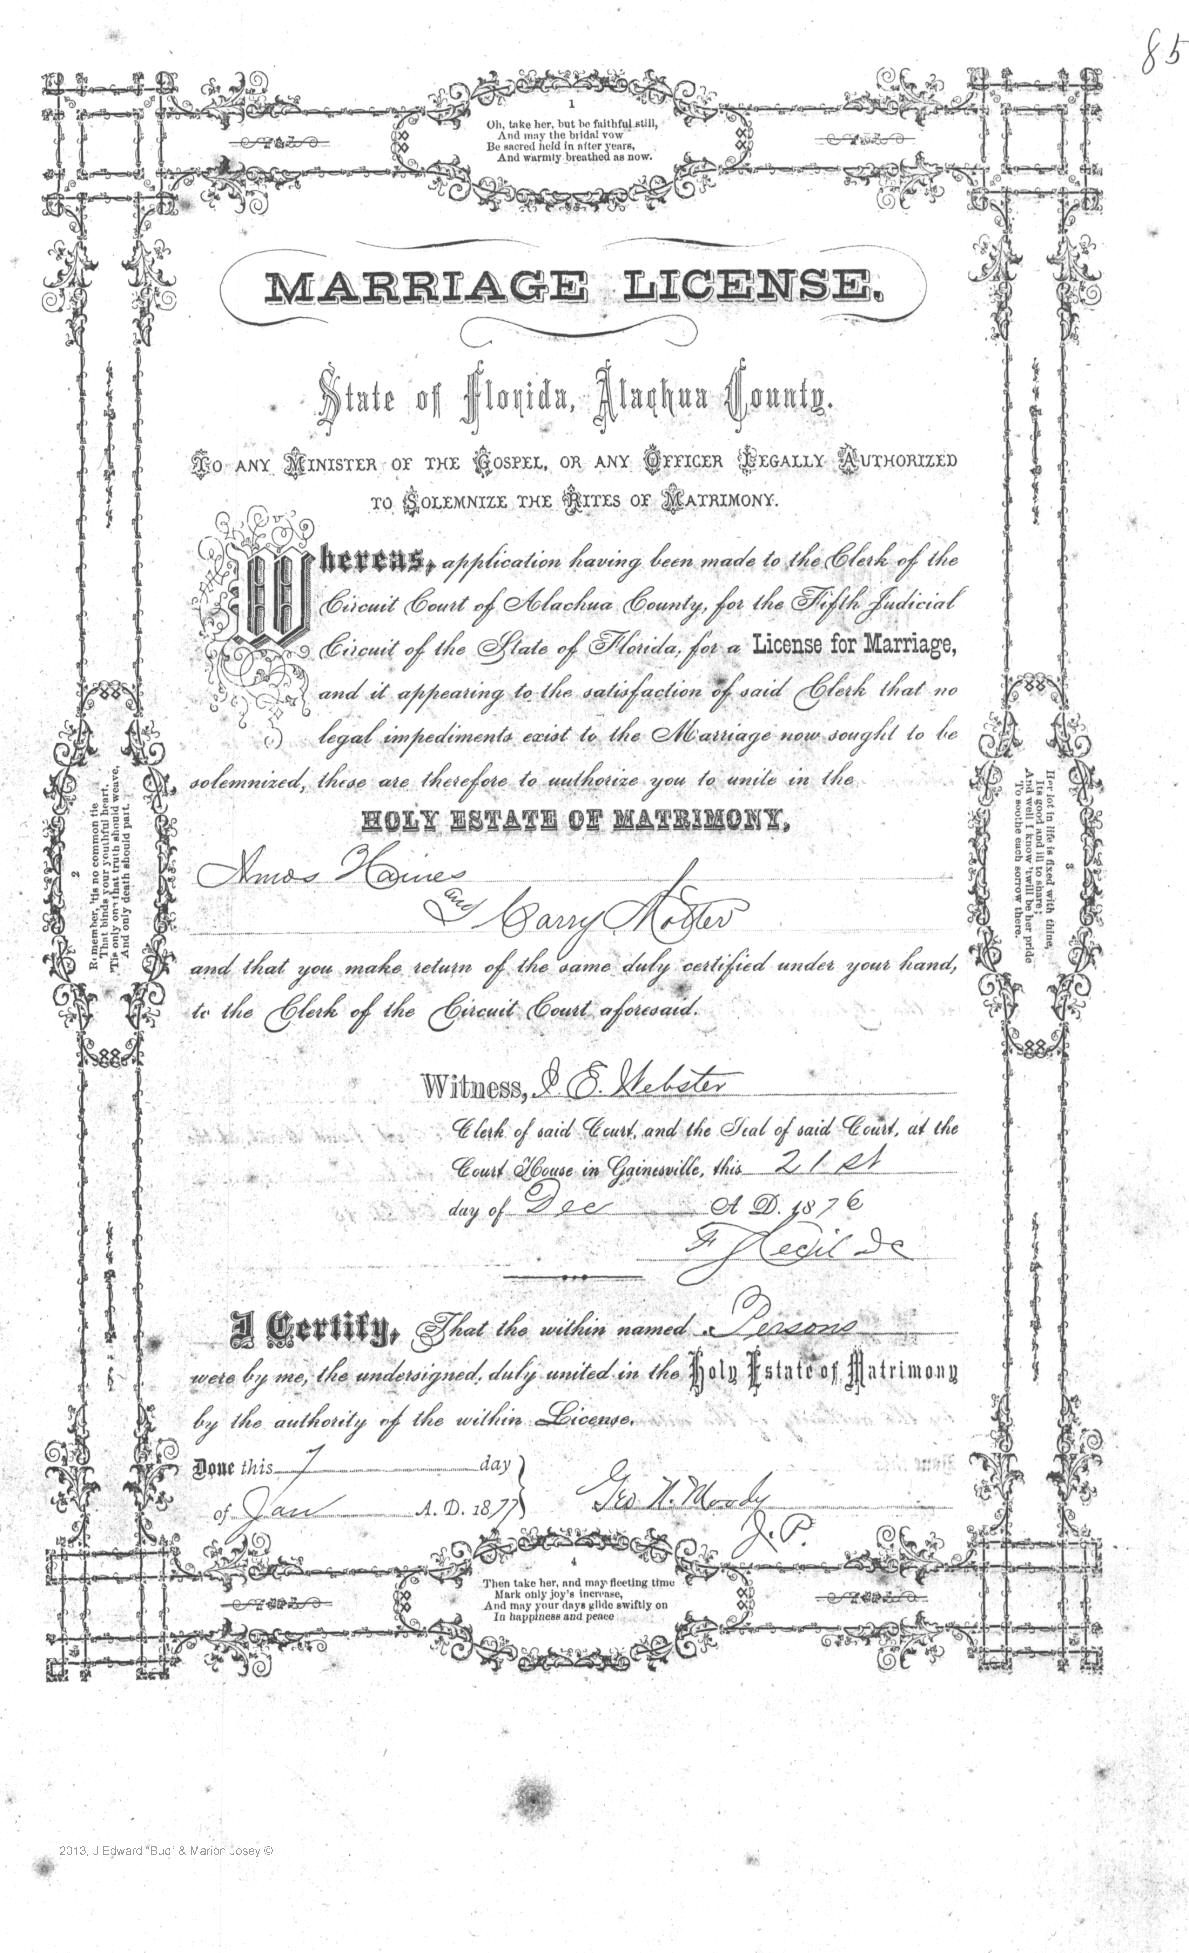 85
1
Oh, take her, but be faithful still,
And may the bridal vow
Be sacred held in after years,
And warmly breathed as now.
MARRIAGE LICENSE.
State of Florida, Alachua County.
TO ANY MINISTER OF THE GOSPEL, OR ANY OFFICER LEGALLY AUTHORIZED
TO SOLEMNIZE THE RITES OF MATRIMONY.
Whereas, application having been made to the Clerk of the
Circuit Court of Alachua County, for the Fifth Judicial
Circuit of the State of Florida, for a License for Marriage,
and it appearing to the satisfaction of said Clerk that no
legal impediments exist to the Marriage now sought to be
solemnized, these are therefore to authorize you to unite in the
HOLY ESTATE OF MATRIMONY,
Amos Haines
and Carry Motter
and that you make return of the same duly certified under your hand,
to the Clerk of the Circuit Court aforesaid.
Witness, E. Webster
Clerk of said Court, and the Seal of said Court, at the
Court House in Gainesville, this 21st
day of Dec A D. 1876
I Certify, That the within named Persons
were by me, the undersigned, duly united in the Holy Estate of Matrimony
by the authority of the within License.
Done this 7 day
of Jan A. D. 1877
Geo H. Moody
J. P.
2
Remember, 'tis no common tie
That binds your youthful heart,
'Tis only one that truth should weave,
And only death should part.
3
Her lot in life is fixed with thine,
Its good and ill to share;
And well I know 'twill be her pride
To soothe each sorrow there.
4
Then take her, and may fleeting time
Mark only joy's increase,
And may your days glide swiftly on
In happiness and peace
2013, J Edward "Bud" & Marion Josey ©